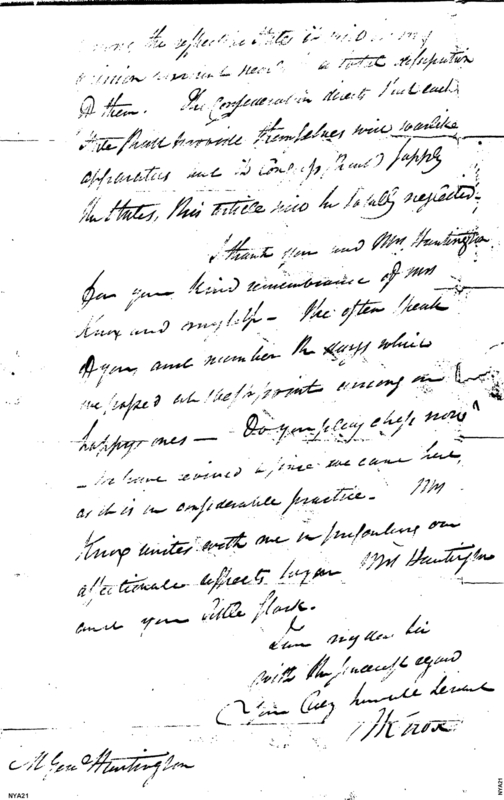 among the respective States is made in my
opinion several need a total dissipation
of them. The Confederation directs that each
State shall provide themselves with warlike
apparatus and if Congress should supply
the States, this article will be totally neglected.
I thank you and Mrs Huntington
for your kind remembrance of Mrs
Knox and myself - We often speak
of you, and number the days which
we passed at West point among our
happy ones - Do you play chess now?
- We have revived it since we came here,
as it is in considerable practice - Mrs
Knox unites with me in presenting our
affectionate respects to you Mrs Huntington
and your little flock.
I am my dear Sir
with the sincerest regard
Your very humble Servant
HKnox
M Gen Huntington
NYA21
NYA21